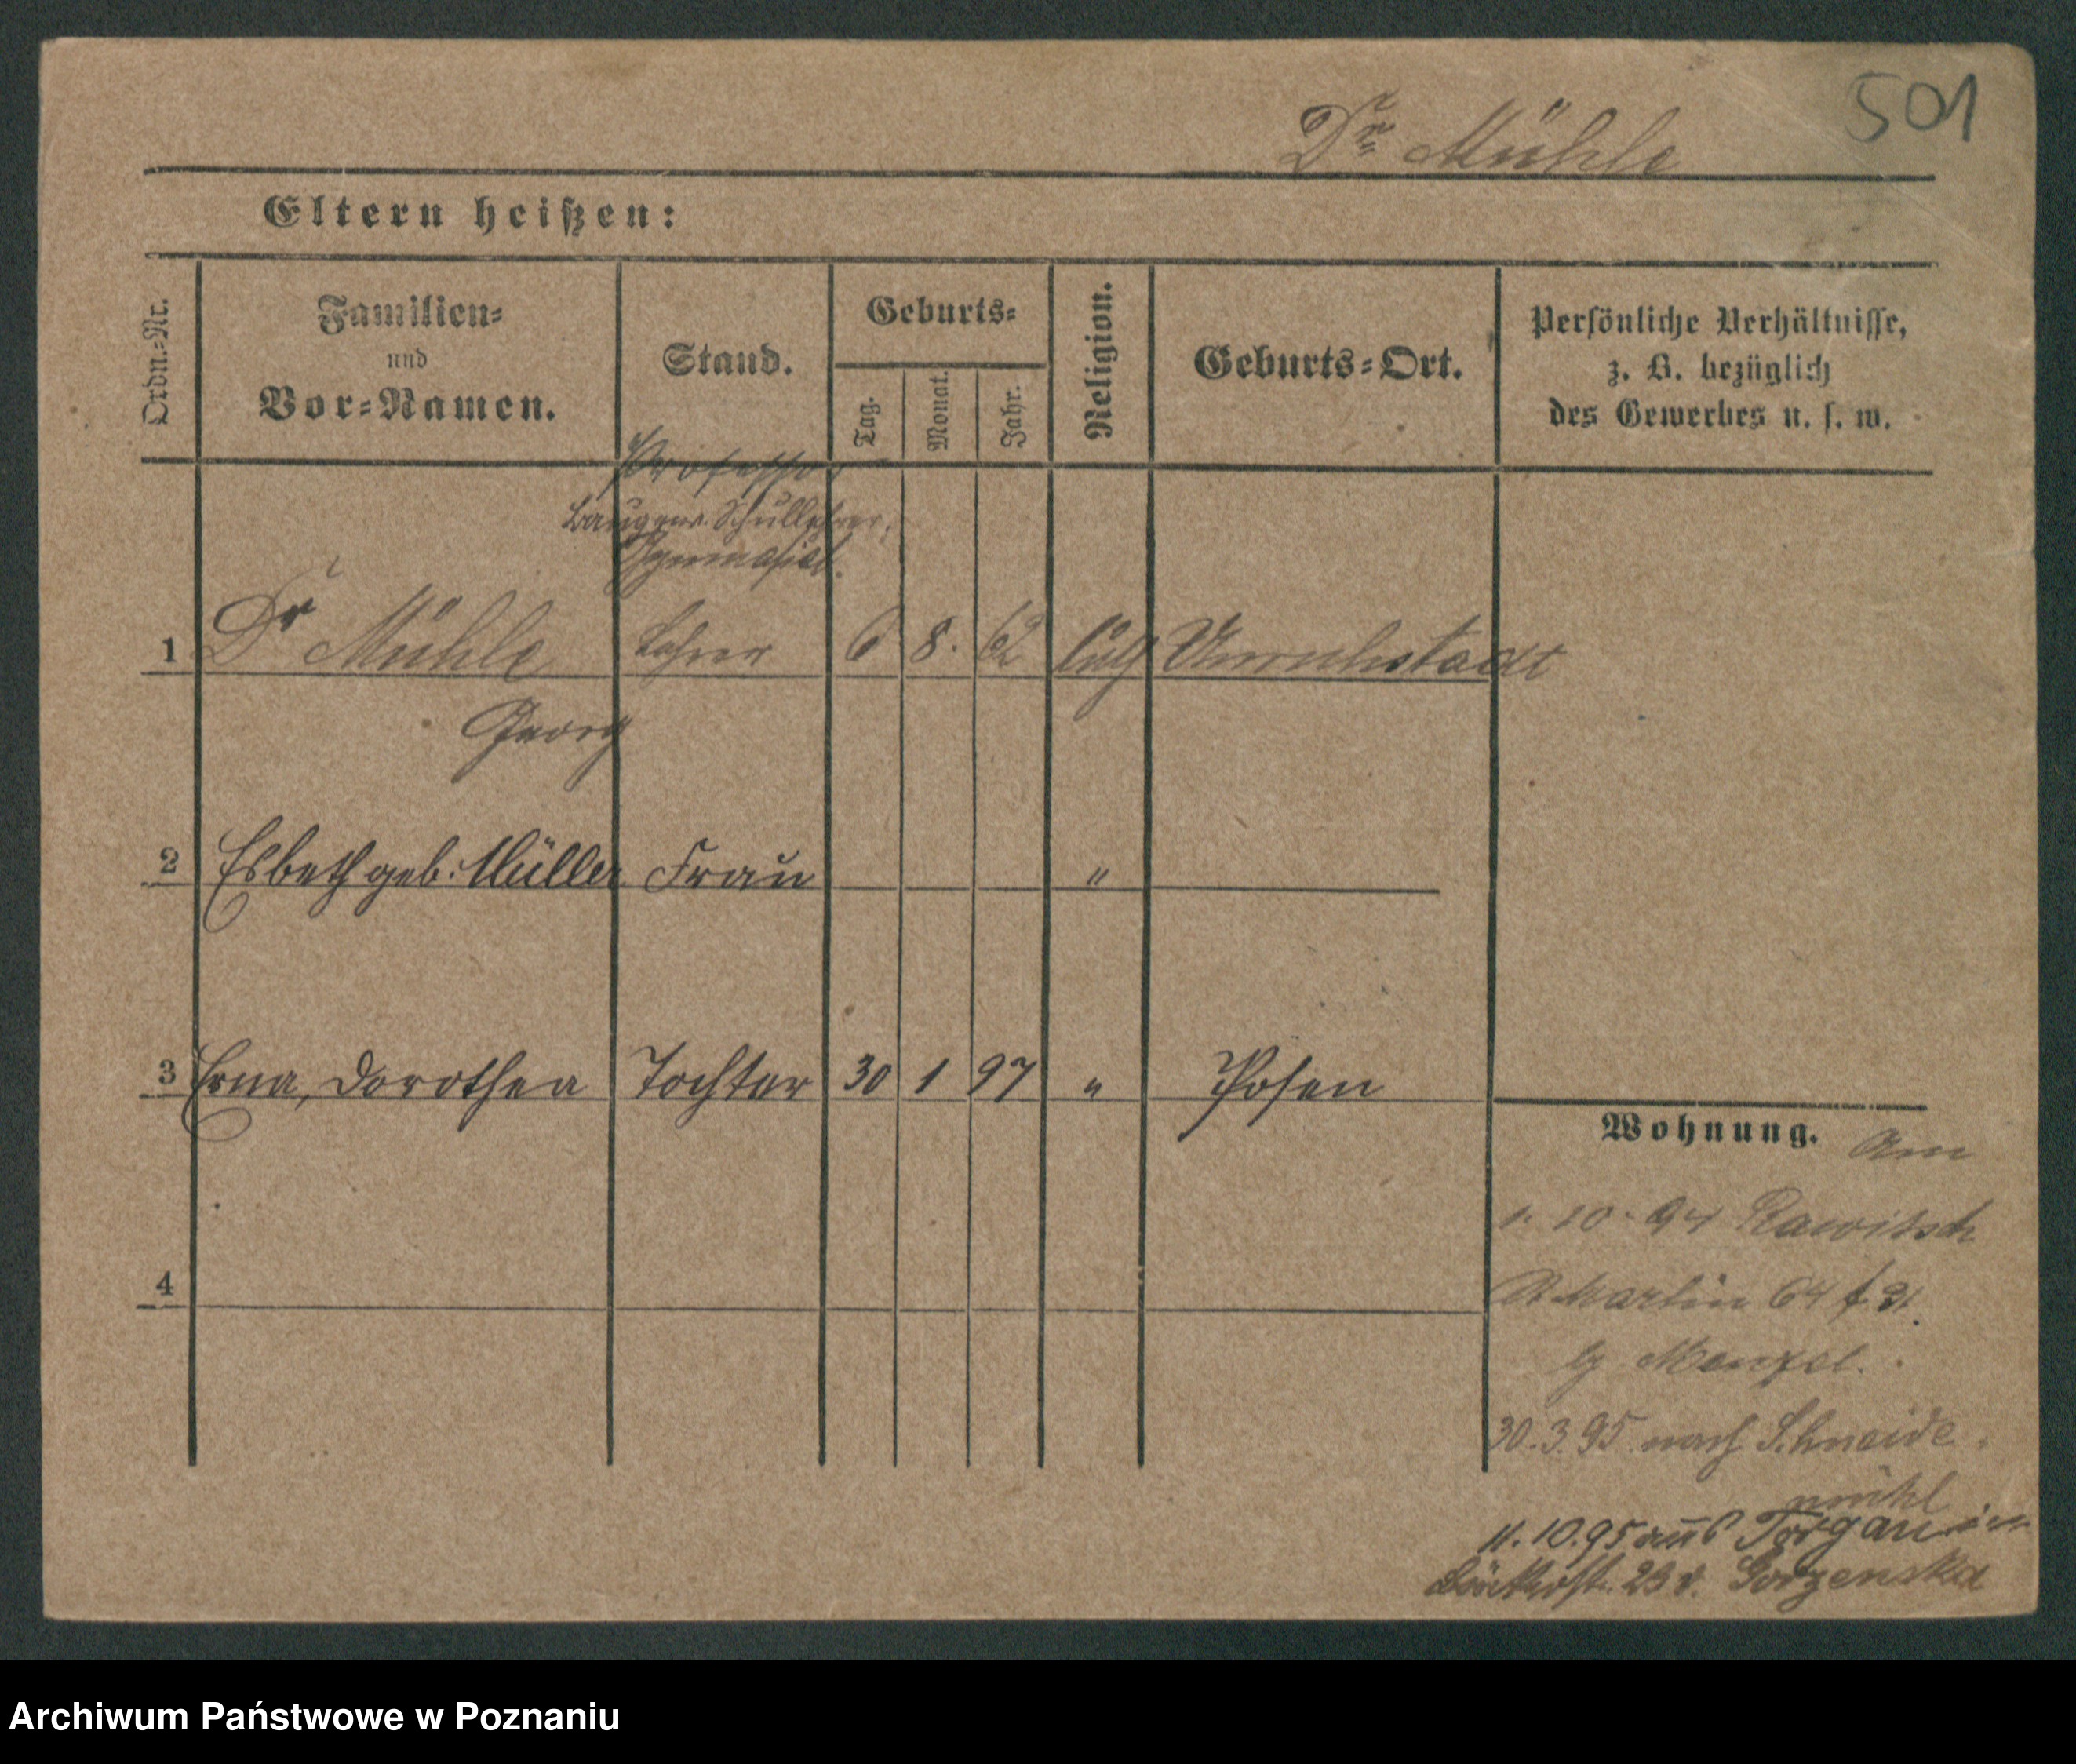 501
Dr. Mühle
Eltern heißen:
Ordn.-Nr.
Familien-
und
Vor-Namen.
Stand.
Geburts-
Tag.
Monat.
Jahr.
Religion.
Geburts-Ort.
Persönliche Verhältnisse,
z. B. bezüglich
des Gewerbes u. s. w.
Professor
Baugew. Schullehrer,
Gymnasial.
1 Dr Mühle Lehrer 6 8. 62 luth Unruhstadt
Georg
2 Elsbeth geb. Müller Frau "
3 Erna, Dorothea Tochter 30 1 97 " Posen
Wohnung. Am
1. 10. 94 Rawitsch
St Martin 64
b/ Menzel.
30.3.95 nach Schneide
mühl
11.10.95 aus Torgau in
23 Gorzenska
4
Archiwum Państwowe w Poznaniu